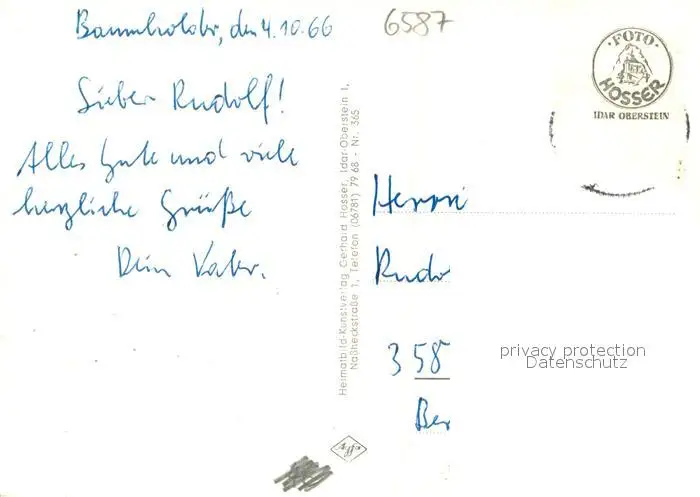 Baumholder, den 4.10.66
6587
Lieber Rudolf!
Alles Gute und viele
herzliche Grüße
Dein Vater.
Heimatbild-Kunstverlag Gerhard Hosser, Idar-Oberstein 1,
Naßheckstraße 1, Telefon (06781) 79 68 - Nr. 365
·FOTO·
HOSSER
IDAR OBERSTEIN
Herrn
Rudo
358
Ber
privacy protection
Datenschutz
Agfa